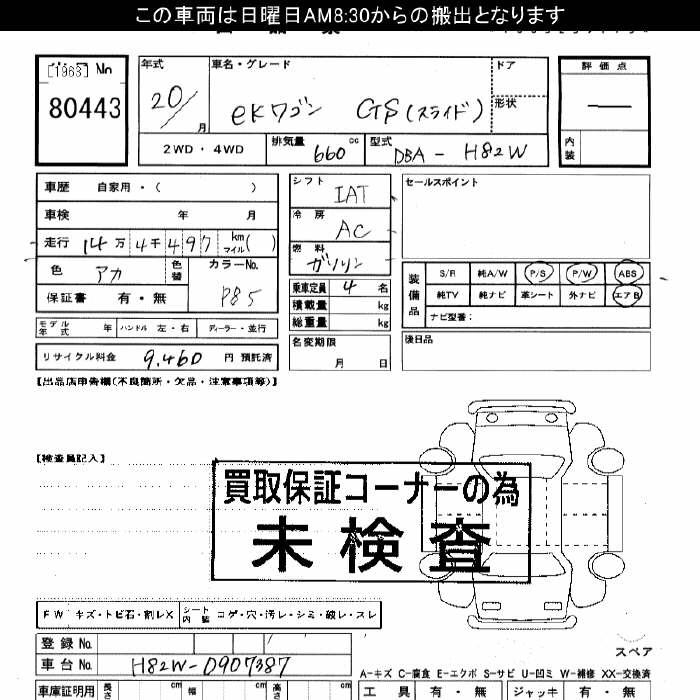 この車両は日曜日AM8:30からの搬出となります
[1963] No
80443
年式
20/
月
車名・グレード
eKワゴン GS(スライド)
ドア
形状
評価点
内装
2WD・4WD
排気量
660 cc
型式
DBA - H82W
車歴 自家用・( )
車検 年 月
走行 14万4千497 km マイル( )
色 アカ
色替
カラーNo.
P85
保証書 有・無
モデル年式 年
ハンドル 左・右
ディーラー・並行
リサイクル料金 9,460 円 預託済
シフト IAT
冷房 AC
燃料 ガソリン
乗車定員 4 名
積載量 kg
総重量 kg
名変期限
月 日
セールスポイント
装備品
S/R 純A/W P/S P/W ABS
純TV 純ナビ 革シート 外ナビ エアB
ナビ型番:
後日品
【出品店申告欄(不良箇所・欠品・注意事項等)】
【検査員記入】
買取保証コーナーの為
未検査
FW キズ・トビ石・割レX
シート内装 コゲ・穴・汚レ・シミ・破レ・スレ
登録No.
車台No. H82W-0907387
スペア
A-キズ C-腐食 E-エクボ S-サビ U-凹ミ W-補修 XX-交換済
車庫証明用
長さ cm
幅 cm
高さ cm
工具 有・無
ジャッキ 有・無